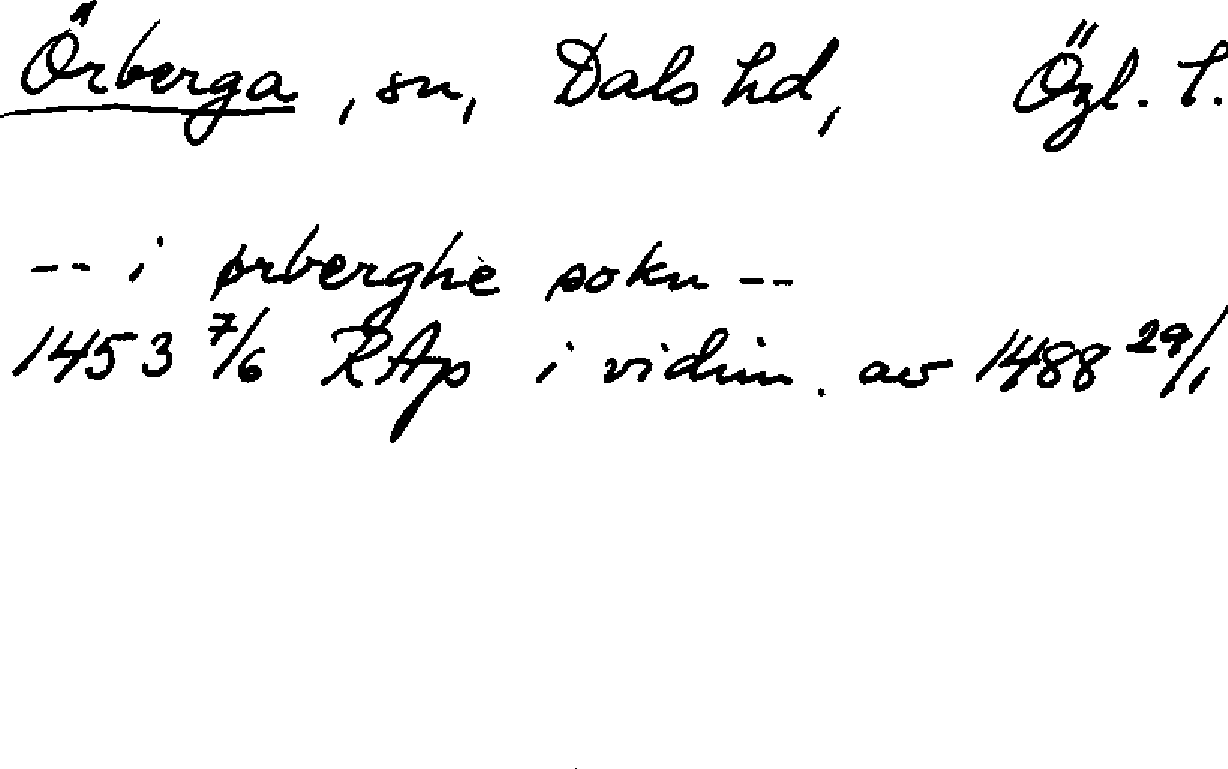 Örberga, sn, Dals hd, Ögl. l.
-- i ørberghe sokn --
1453 7/6 RAp i vidim. av 1488 29/1